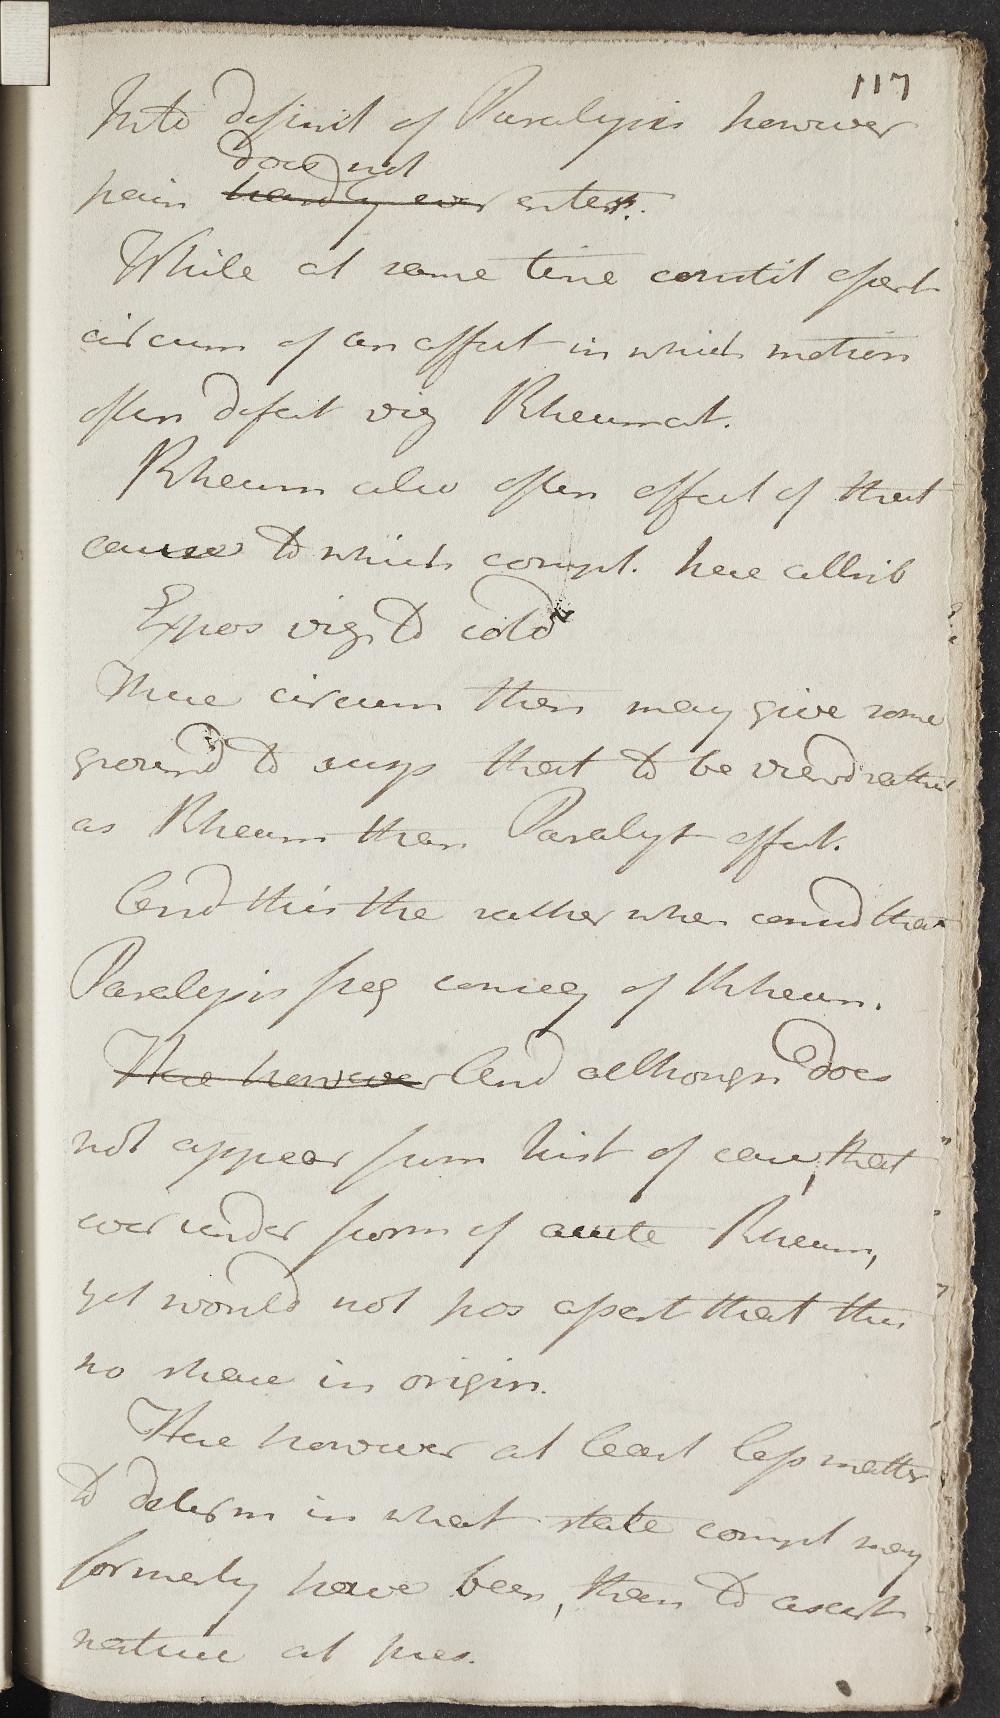 117
Into definit of Paralysis however
does not
pain hardly ever enters.
While at same time constit essent
circum of an affect in which motion
often defect viz Rheumat.
Rheum also often effect of that
cause to which compt. here attrib
Expos viz to cold
These circum then may give some
ground to susp that to be viewd rather
as Rheum than Paralyt affect.
And this the rather when consid that
Paralysis freq conseq of Rheum.
Here however And although does
not appear from hist of case, that
ever under form of acute Rheum,
yet would not pos assert that this
no share in origin.
Here however at least less matter
to determ in what state compt may
formerly have been, than to ascert
nature at pres.